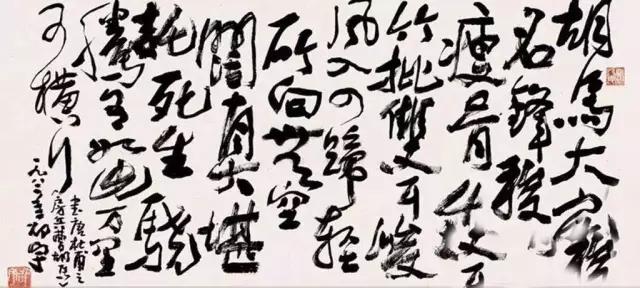 胡馬大宛
名鋒稜
瘦骨成
竹批雙耳峻
風入四蹄輕
所向無空
闊真堪
託死生驍
騰有如此万里
可橫行
書唐杜甫之
房兵曹胡馬
一九八年